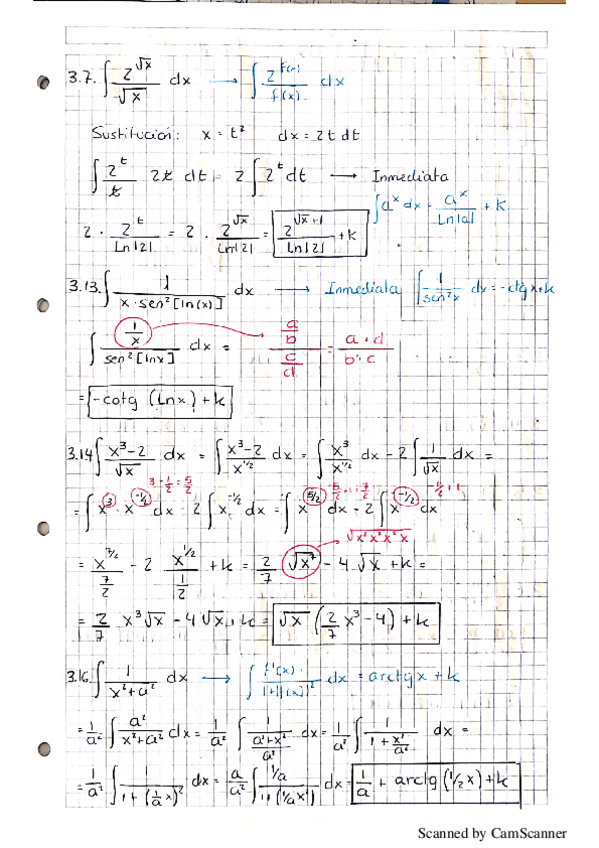 3.7. ∫ 2^√x / √x dx → ∫ 2^f(x) / f'(x) dx
Sustitución: x = t² dx = 2t dt
∫ 2^t / t 2t dt = 2 ∫ 2^t dt → Inmediata
∫ a^x dx = a^x / Ln|a| + k
2 · 2^t / Ln|2| = 2 · 2^√x / Ln|2| = 2^(√x+1) / Ln|2| + k
3.13. ∫ 1 / (x · sen² [ln(x)]) dx → Inmediata ∫ 1 / sen²x dx = -ctg x + k
∫ (1/x) / sen² [lnx] dx = (a/b) / (c/d) = a · d / b · c
= -cotg (Lnx) + k
3.14 ∫ (x³-2) / √x dx = ∫ (x³-2) / x^(1/2) dx = ∫ x³ / x^(1/2) dx - 2 ∫ 1 / √x dx =
3 - 1/2 = 5/2 5/2 + 1 = 7/2 -1/2 + 1
= ∫ x³ · x^(-1/2) dx - 2 ∫ x^(-1/2) dx = ∫ x^(5/2) dx - 2 ∫ x^(-1/2) dx
√x² x² x² x
= x^(7/2) / (7/2) - 2 x^(1/2) / (1/2) + k = 2/7 √x⁷ - 4 √x + k =
= 2/7 x³ √x - 4 √x + k = √x (2/7 x³ - 4) + k
3.16. ∫ 1 / (x²+a²) dx → ∫ f'(x) / (1+[f(x)]²) dx = arctg x + k
= 1/a² ∫ a² / (x²+a²) dx = 1/a² ∫ 1 / ((a²+x²)/a²) dx = 1/a² ∫ 1 / (1 + x²/a²) dx =
= 1/a² ∫ 1 / (1 + (1/a x)²) dx = a/a² ∫ (1/a) / (1+(1/a x)²) dx = 1/a + arctg (1/2 x) + k
Scanned by CamScanner